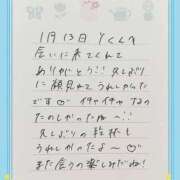 1月13日 Yくんへ
会いに来てくれて
ありがとう!! 久しぶり
に顔見れてうれしかった
です♡ イチャイチャするの
たのしかったね〜♡
久しぶりの
うれしかったよ〜♡
また会うの楽しみだね!